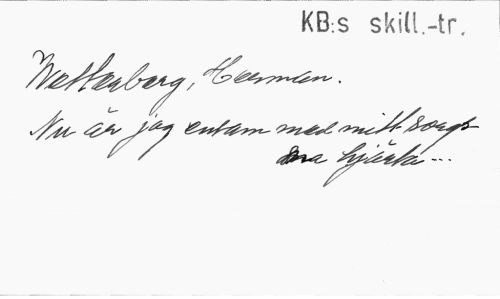 KB:s skill.-tr.
Wettenberg, Herman.
Nu är jag ensam med mitt sorg-
sna hjärta...